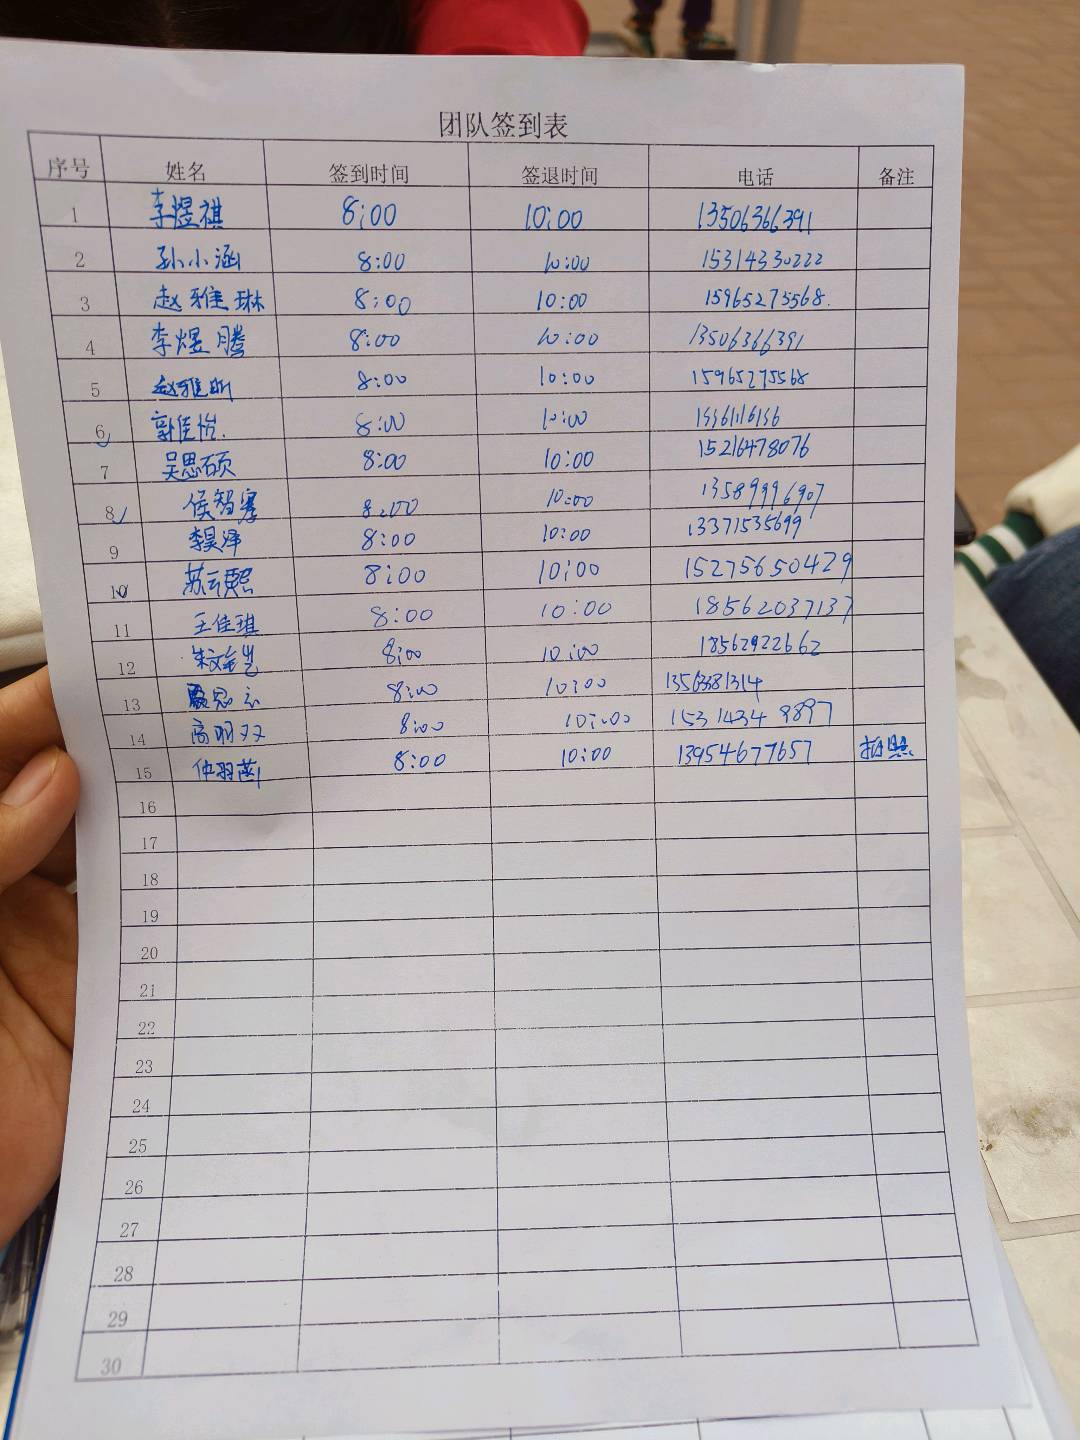 团队签到表
序号 姓名 签到时间 签退时间 电话 备注
1 李煜祺 8:00 10:00 13506366391
2 孙小涵 8:00 10:00 15314330222
3 赵雅琳 8:00 10:00 15965275568.
4 李煜腾 8:00 10:00 13506366391
5 赵雅昕 8:00 10:00 15965275568
6 郭佳怡. 8:00 10:00
7 吴思硕 8:00 10:00 15216478076
8 侯智骞 8:00 10:00 13589996907
9 李昊泽 8:00 10:00 13371535699
10 苏云熙 8:00 10:00 15275650429
11 王佳琪 8:00 10:00 18562037137
12 8:00 10:00 18562922662
13 8:00 10:00 13563381314
14 高羽双 8:00 10:00 15314349897
15 仲羽菡 8:00 10:00 13954677657 拍照
16
17
18
19
20
21
22
23
24
25
26
27
28
29
30